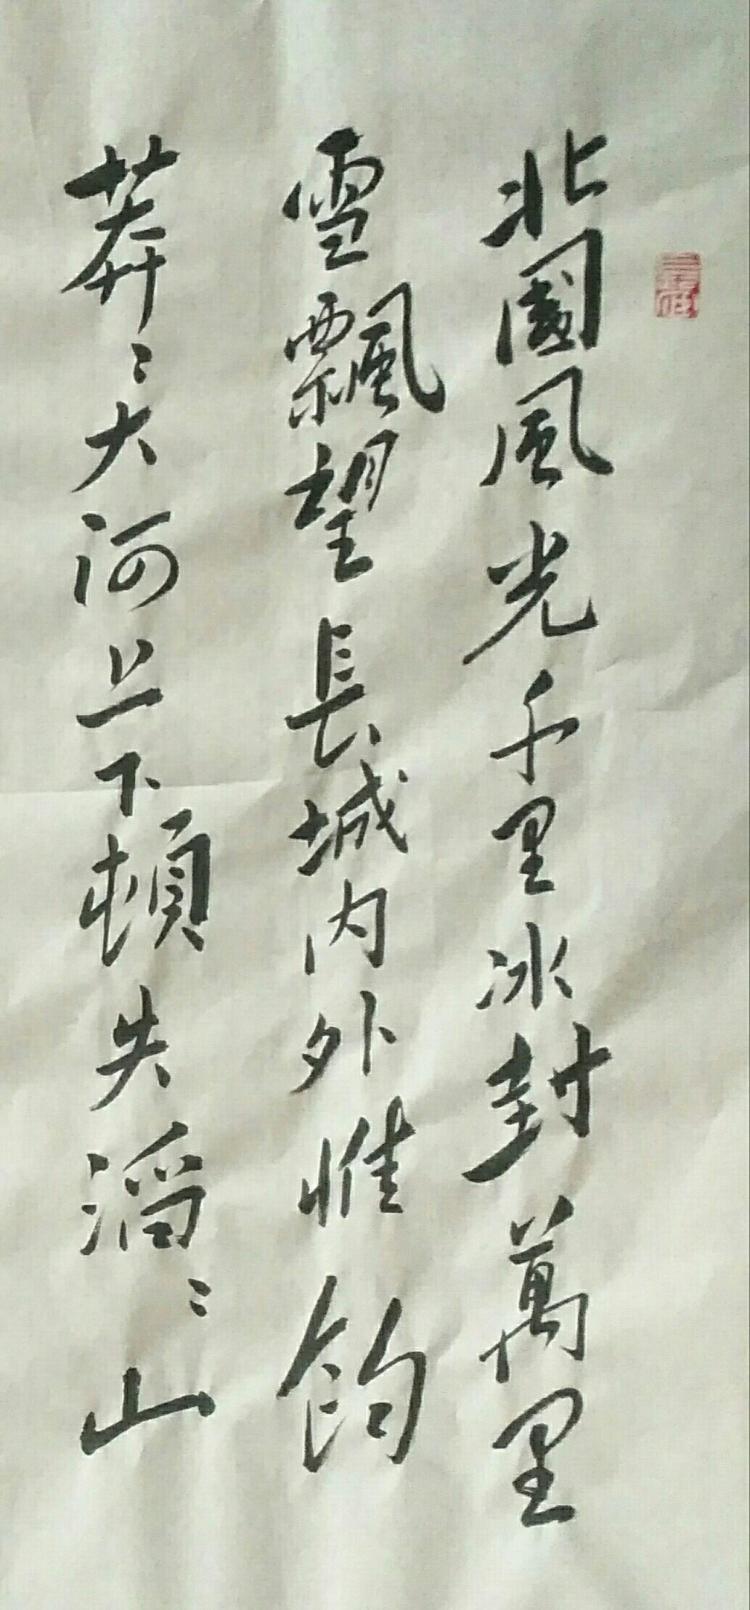 北國風光千里冰封萬里
雪飄望長城内外惟餘
莽〻大河上下頓失滔〻山